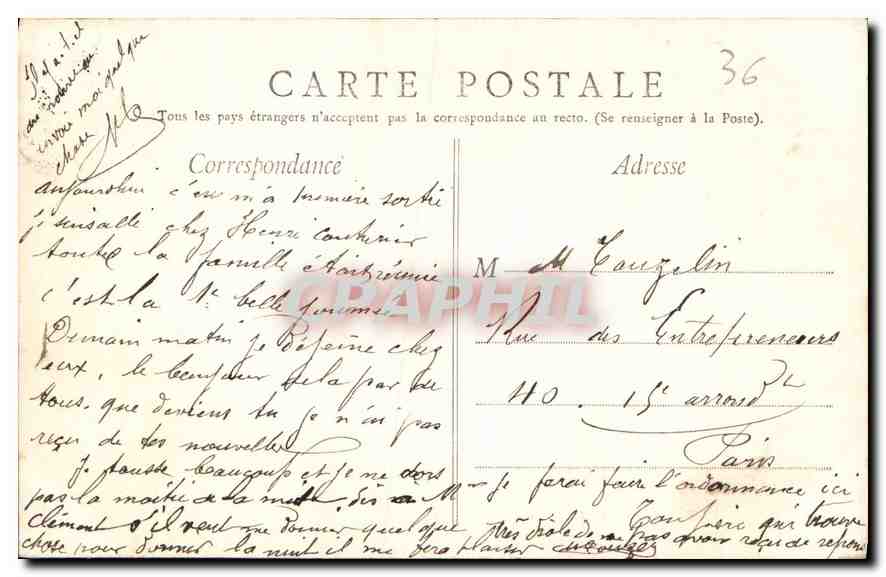 Il y a-t-il
du nouveau
envoie moi quelque
chose
36
CARTE POSTALE
Tous les pays étrangers n'acceptent pas la correspondance au recto. (Se renseigner à la Poste).
Correspondance
Adresse
aujourdhui c'est ma première sortie
chez Henri
toute la famille était réunie
c'est la 1e belle journée
Demain matin je déjeune chez
eux, le bonjour de la par de
tous, que deviens tu je n'ai pas
reçu de tes nouvelles
Je tousse beaucoup et je ne dors
pas la moitié de la nuit dis a M
Clément s'il veut me donner quelque
chose pour donner la nuit il me fera plaisir
je ferai faire l'ordonnance ici
Ton frère qui trouve
très drôle de ne pas avoir reçu de reponse
M M Cougelin
Rue des Entrepreneurs
40. 15e arrondt
Paris
CPAPHIL